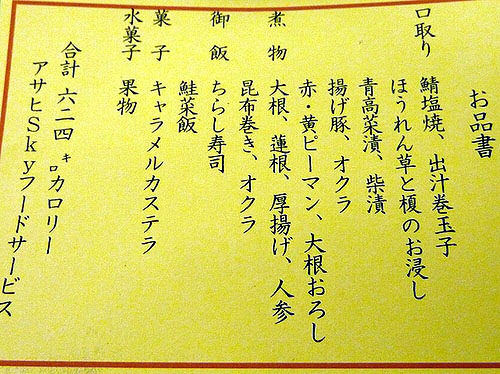 お品書
口取り 鯖塩焼、出汁巻玉子
ほうれん草と榎のお浸し
青高菜漬、柴漬
揚げ豚、オクラ
赤・黄ピーマン、大根おろし
煮物 大根、蓮根、厚揚げ、人参
昆布巻き、オクラ
御飯 ちらし寿司
鮭菜飯
菓子 キャラメルカステラ
水菓子 果物
合計 六二四 ㌔カロリー
アサヒSkyフードサービス